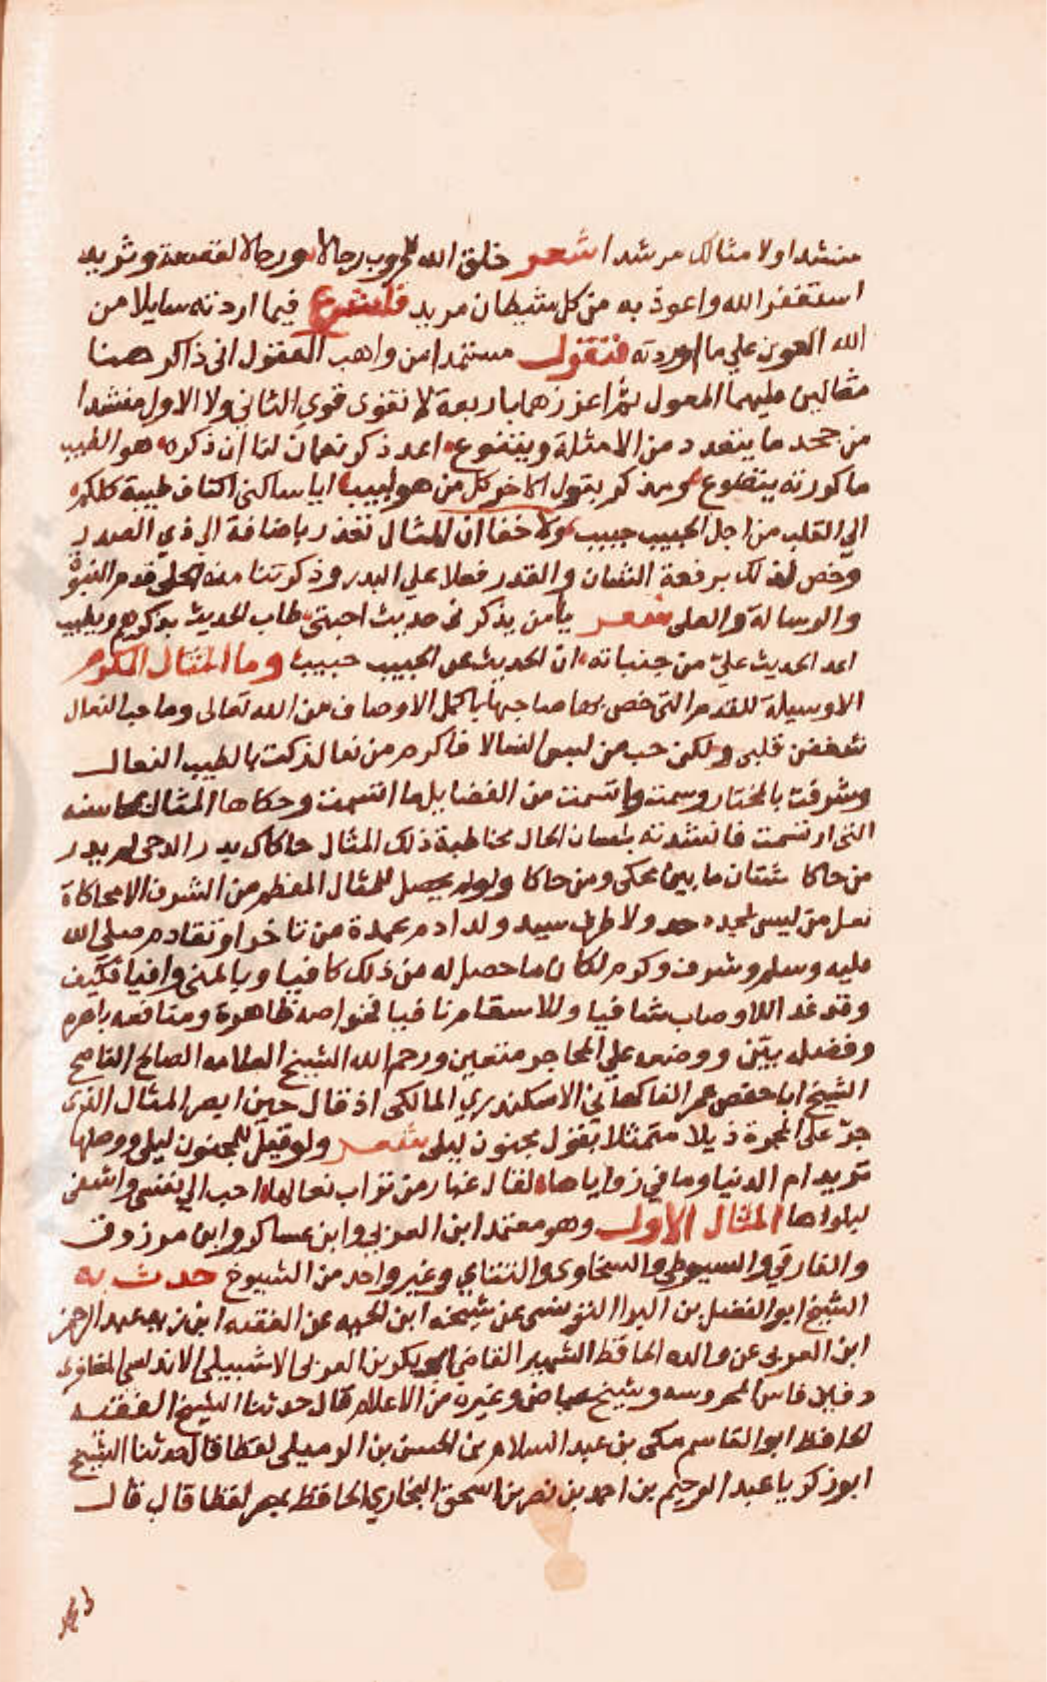 منشدا ولا مثالك مرشدا شعر خلق الله للحروب رجالا ورجالا لقصعة وثريد
استغفر الله واعوذ به من كل شيطان مريد فلنشرع فيما اردته سايلا من
الله العون علي ما اوردته فنقول مستمدا من واهب العقول اني ذاكر هنا
مثالين عليهما المعول ثم اعززهما باربعة لا تقوى قوي الثاني ولا الاول منشدا
من جحد ما يتعدد من الامثلة ويتنوع اعد ذكر نعمان لنا ان ذكره هو الطيب
ما كررته يتضوع ومذكر بقول الاخر كل من هو لبيب ايا ساكني اكناف طيبة كلكم
الي القلب من اجل الحبيب حبيب ولا خفا ان المثال تعذر باضافة الي ذي الصدر
وخص لذلك برفعة الشان والقدر فعلا علي البدر وذكرتنا منه الحلى قدم النبوة
والرسالة والعلى شعر يا من يذكرني حديث احبتي طاب الحديث بذكرهم ويطيب
اعد الحديث عليّ من جنباته ان الحديث عن الحبيب حبيب وما المثال المكرم
الا وسيلة للقدم التي خص بها صاحبها باكمل الاوصاف من الله تعالى وما حب النعال
شغفن قلبي ولكن حب من لبس النعالا فاكرم من نعال ذكت بالطيب النعال
وشرفت بالمختار وسمت واتسمت من الفضايل بما اتسمت وحكاها المثال بمحاسنه
التي ارتسمت فانشدته بلسان الحال مخاطبة ذلك المثال حاكاك بدر الدجى لم يدر
من حاكا شتان ما بين محكى ومن حاكا ولو لم يحصل للمثال المعظم من الشرف الا محاكاة
نعل من ليس لمجده حد ولا طرف سيد ولد ادم عمدة من تاخر او تقادم صلي الله
عليه وسلم وشرف وكرم لكان ما حصل له من ذلك كافيا وبالمنى وافيا فكيف
وقد غدا للاوصاب شافيا وللاسقام نافيا فخواصه ظاهرة ومنافعه باهرة
وفضله بيّن ووضعه علي المحاجر متعين ورحم الله الشيخ العلامه الصالح الناصح
الشيخ ابا حفص عمر الفاكهاني الاسكندري المالكي اذ قال حين ابصر المثال الذي
جرّ على المجرة ذيلا متمثلا بقول مجنون ليلى شعر ولو قيل للمجنون ليلى ووصلها
تريد ام الدنيا وما في زواياها لقال غبار من تراب نعالها احب الي نفسي واشفى
لبلواها المثال الاول وهو معتمد ابن العربي وابن عساكر وابن مرزوق
والفارقي والسيوطي والسخاوي والتتاي وغير واحد من الشيوخ حدث به
الشيخ ابو الفضل بن البرا التونسي عن شيخه ابن الحبه عن الفقيه ابن زيد عبد الرحمن
ابن العربي عن والده الحافظ الشهير القاضي ابو بكر بن العربي الاشبيلي الاندلسي المعافري
دفين فاس المحروسه وشيخ عياض وغيره من الاعلام قال حدثنا الشيخ الفقيه
الحافظ ابو القاسم مكي بن عبد السلام بن الحسن بن الرميلي لفظا قال حدثنا الشيخ
ابو زكريا عبد الرحيم بن احمد بن نصر بن اسحق البخاري الحافظ بمصر لفظا قال قال